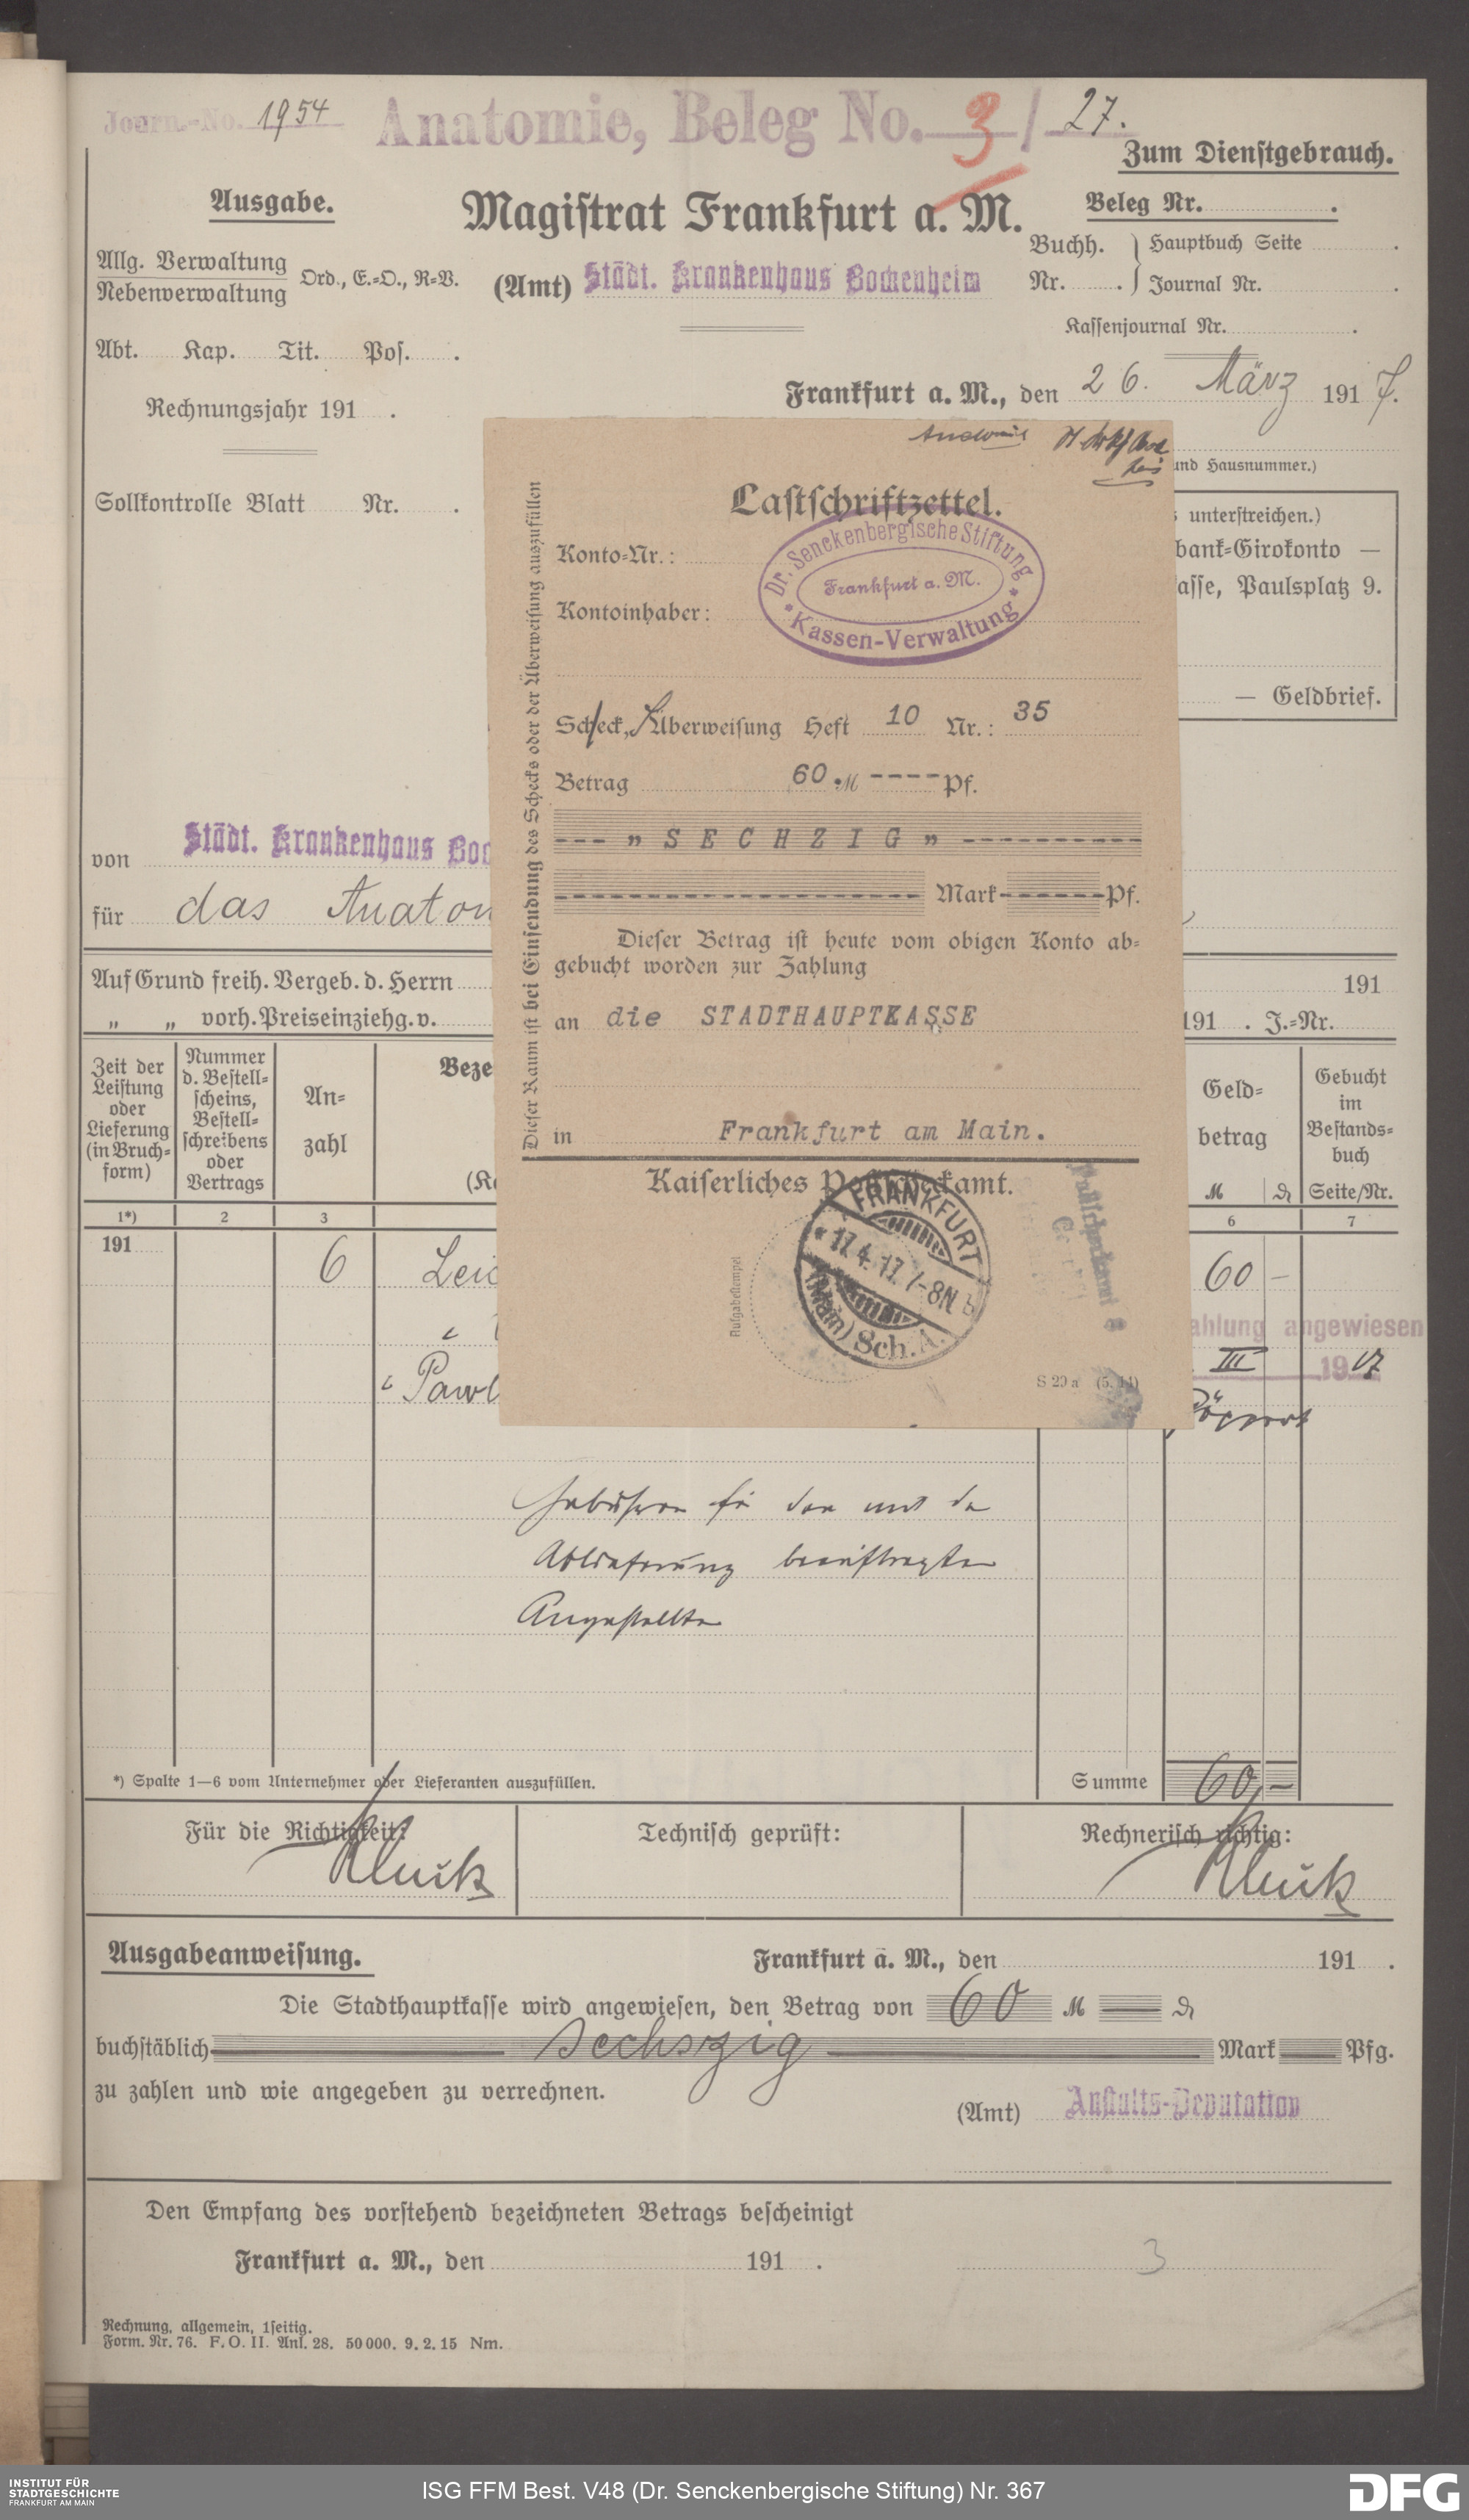 Journ.-No. 1954 Anatomie, Beleg No. 3 / 27.
Zum Dienstgebrauch.
Ausgabe.
Magistrat Frankfurt a. M.
Beleg Nr. .
Allg. Verwaltung
Nebenverwaltung
Ord., E.=O., R=V.
(Amt) Städt. Krankenhaus Bockenheim
Buchh. Nr. . } Hauptbuch Seite .
Journal Nr. .
Kassenjournal Nr. .
Abt. Kap. Tit. Pos. .
Frankfurt a. M., den 26. März 1917.
Rechnungsjahr 191 .
und Hausnummer.)
Sollkontrolle Blatt Nr. .
unterstreichen.)
bank=Girokonto —
asse, Paulsplatz 9.
— Geldbrief.
Lastschriftzettel.
Konto=Nr.:
Kontoinhaber:
Dr. Senckenbergische Stiftung
Frankfurt a. M.
* Kassen-Verwaltung *
Scheck, Überweisung Heft 10 Nr.: 35
Betrag 60.M ---- Pf.
--- „ S E C H Z I G „ ----------
Mark ------- Pf.
Dieser Betrag ist heute vom obigen Konto ab=
gebucht worden zur Zahlung
an die STADTHAUPTKASSE
in Frankfurt am Main.
Kaiserliches Postscheckamt.
FRANKFURT
* 17.4.17. 7-8N b
(Main) Sch.A.
Aufgabestempel
S 29 a (5. 14)
Dieser Raum ist bei Einsendung des Schecks oder der Überweisung auszufüllen
von Städt. Krankenhaus Boc
für das Anatom
Auf Grund freih. Vergeb. d. Herrn 191
„ „ vorh. Preiseinziehg. v. 191 . J.=Nr.
Zeit der Leistung oder Lieferung (in Bruch=form)
Nummer d. Bestell=scheins, Bestell=schreibens oder Vertrags
An=zahl
Beze
Geld=betrag
M ₰
Gebucht im Bestands=buch
Seite/Nr.
1*) 2 3 6 7
191 6 Leic 60 —
ahlung angewiesen
III 1917
Pawl
Gebühren für den mit der
Ablieferung beauftragten
Angestellten
*) Spalte 1—6 vom Unternehmer oder Lieferanten auszufüllen.
Summe 60,—
Für die Richtigkeit:
Technisch geprüft:
Rechnerisch richtig:
Ausgabeanweisung.
Frankfurt a. M., den 191 .
Die Stadthauptkasse wird angewiesen, den Betrag von 60 M — ₰
buchstäblich sechszig Mark Pfg.
zu zahlen und wie angegeben zu verrechnen.
(Amt) Anstalts-Deputation
Den Empfang des vorstehend bezeichneten Betrags bescheinigt
Frankfurt a. M., den 191 .
3
Rechnung, allgemein, 1seitig.
Form. Nr. 76. F. O. II. Anl. 28. 50000. 9. 2. 15 Nm.
INSTITUT FÜR
STADTGESCHICHTE
FRANKFURT AM MAIN
ISG FFM Best. V48 (Dr. Senckenbergische Stiftung) Nr. 367
DFG